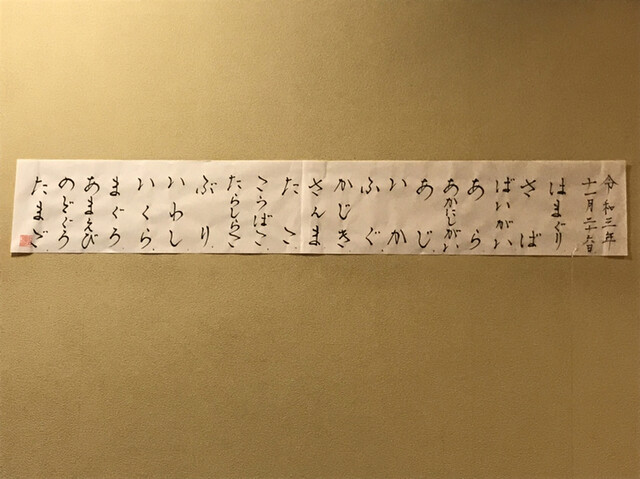 令和三年
十一月二十六日
はまぐり
さば
ばいがい
あら
あかにしがい
あじ
いか
ふぐ
かじき
さんま
たこ
こうばこ
たらしらこ
ぶり
いわし
いくら
まぐろ
あまえび
のどぐろ
たまご